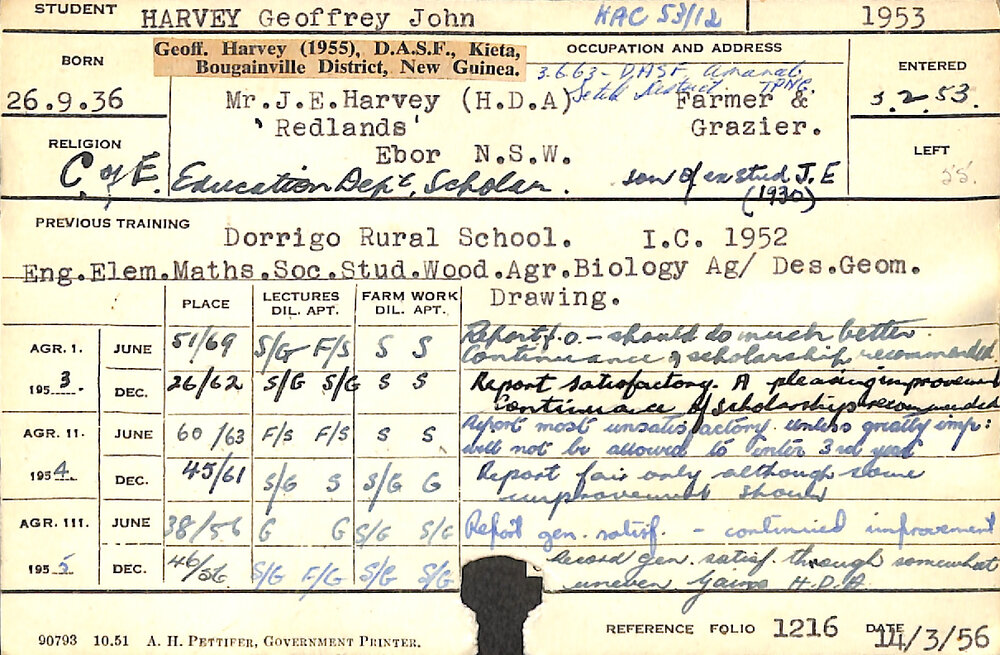 STUDENT HARVEY Geoffrey John HAC 53/12 1953
BORN
Geoff. Harvey (1955), D.A.S.F., Kieta,
Bougainville District, New Guinea.
OCCUPATION AND ADDRESS
ENTERED
3.6.63 - DASF Amanab
Sepik District. TPNG.
26.9.36 Mr.J.E.Harvey (H.D.A) Farmer & 3.2.53.
'Redlands' Grazier.
RELIGION Ebor N.S.W. LEFT
C of E. Education Dept. Scholar. son of ex stud J.E 55.
(1930)
PREVIOUS TRAINING Dorrigo Rural School. I.C. 1952
Eng.Elem.Maths.Soc.Stud.Wood.Agr.Biology Ag/ Des.Geom.
Drawing.
PLACE LECTURES DIL. APT. FARM WORK DIL. APT.
AGR. 1. JUNE 51/69 S/G F/S S S Report f.o. - should do much better.
Continuance of scholarship recommended
1953. DEC. 26/62 S/G S/G S S Report satisfactory. A pleasing improvement
Continuance of scholarship recommended
AGR. 11. JUNE 60/63 F/S F/S S S Report most unsatisfactory. unless greatly imp:
will not be allowed to enter 3rd year
1954. DEC. 45/61 S/G S S/G G Report fair only although some
improvement shown
AGR. III. JUNE 38/56 G G S/G S/G Report gen. satisf. - continued improvement
1955. DEC. 46/56 S/G F/G S/G S/G Record gen. satisf. though somewhat
uneven Gains H.D.A
90793 10.51 A. H. PETTIFER, GOVERNMENT PRINTER.
REFERENCE FOLIO 1216 DATE 14/3/56